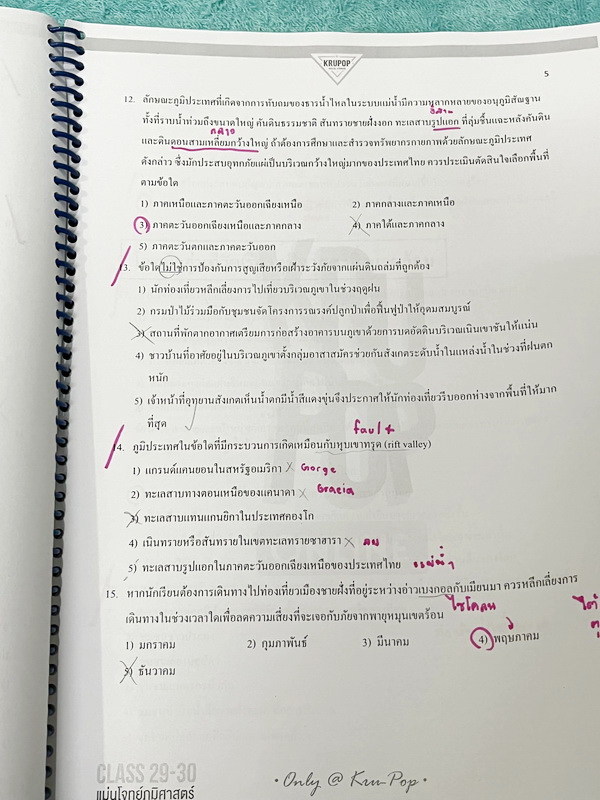 KRUPOP
5
12. ลักษณะภูมิประเทศที่เกิดจากการทับถมของธารน้ำไหลในระบบแม่น้ำมีความหลากหลายของอนุภูมิสัณฐาน
อีสาน
ทั้งที่ราบน้ำท่วมถึงขนาดใหญ่ คันดินธรรมชาติ สันทรายชายฝั่งงอก ทะเลสาบรูปแอก ที่ลุ่มชื้นแฉะหลังคันดิน
กลาง
และดินดอนสามเหลี่ยมกว้างใหญ่ ถ้าต้องการศึกษาและสำรวจทรัพยากรกายภาพด้วยลักษณะภูมิประเทศ
ดังกล่าว ซึ่งมักประสบอุทกภัยแผ่เป็นบริเวณกว้างใหญ่มากของประเทศไทย ควรประเมินตัดสินใจเลือกพื้นที่
ตามข้อใด
1) ภาคเหนือและภาคตะวันออกเฉียงเหนือ 2) ภาคกลางและภาคเหนือ
3) ภาคตะวันออกเฉียงเหนือและภาคกลาง 4) ภาคใต้และภาคกลาง
5) ภาคตะวันตกและภาคตะวันออก
13. ข้อใดไม่ใช่การป้องกันการสูญเสียหรือเฝ้าระวังภัยจากแผ่นดินถล่มที่ถูกต้อง
1) นักท่องเที่ยวหลีกเลี่ยงการไปเที่ยวบริเวณภูเขาในช่วงฤดูฝน
2) กรมป่าไม้ร่วมมือกับชุมชนจัดโครงการรณรงค์ปลูกป่าเพื่อฟื้นฟูป่าให้อุดมสมบูรณ์
3) สถานที่พักตากอากาศเตรียมการก่อสร้างอาคารบนภูเขาด้วยการบดอัดดินบริเวณเนินเขาชันให้แน่น
4) ชาวบ้านที่อาศัยอยู่ในบริเวณภูเขาตั้งกลุ่มอาสาสมัครช่วยกันสังเกตระดับน้ำในแหล่งน้ำในช่วงที่ฝนตก
หนัก
5) เจ้าหน้าที่อุทยานสังเกตเห็นน้ำตกมีน้ำสีแดงขุ่นจึงประกาศให้นักท่องเที่ยวรีบออกห่างจากพื้นที่ให้มาก
ที่สุด
fault
14. ภูมิประเทศในข้อใดที่มีกระบวนการเกิดเหมือนกับหุบเขาทรุด (rift valley)
1) แกรนด์แคนยอนในสหรัฐอเมริกา Gorge
2) ทะเลสาบทางตอนเหนือของแคนาดา Gracia
3) ทะเลสาบแทนแกนยิกาในประเทศคองโก
4) เนินทรายหรือสันทรายในเขตทะเลทรายซาฮารา ลม
5) ทะเลสาบรูปแอกในภาคตะวันออกเฉียงเหนือของประเทศไทย
15. หากนักเรียนต้องการเดินทางไปท่องเที่ยวเมืองชายฝั่งที่อยู่ระหว่างอ่าวเบงกอลกับเมียนมา ควรหลีกเลี่ยงการ
ไซโคลน
เดินทางในช่วงเวลาใดเพื่อลดความเสี่ยงที่จะเจอกับภัยจากพายุหมุนเขตร้อน
1) มกราคม 2) กุมภาพันธ์ 3) มีนาคม 4) พฤษภาคม
5) ธันวาคม
CLASS 29-30
แม่นโจทย์ภูมิศาสตร์
• Only @ Kru Pop •